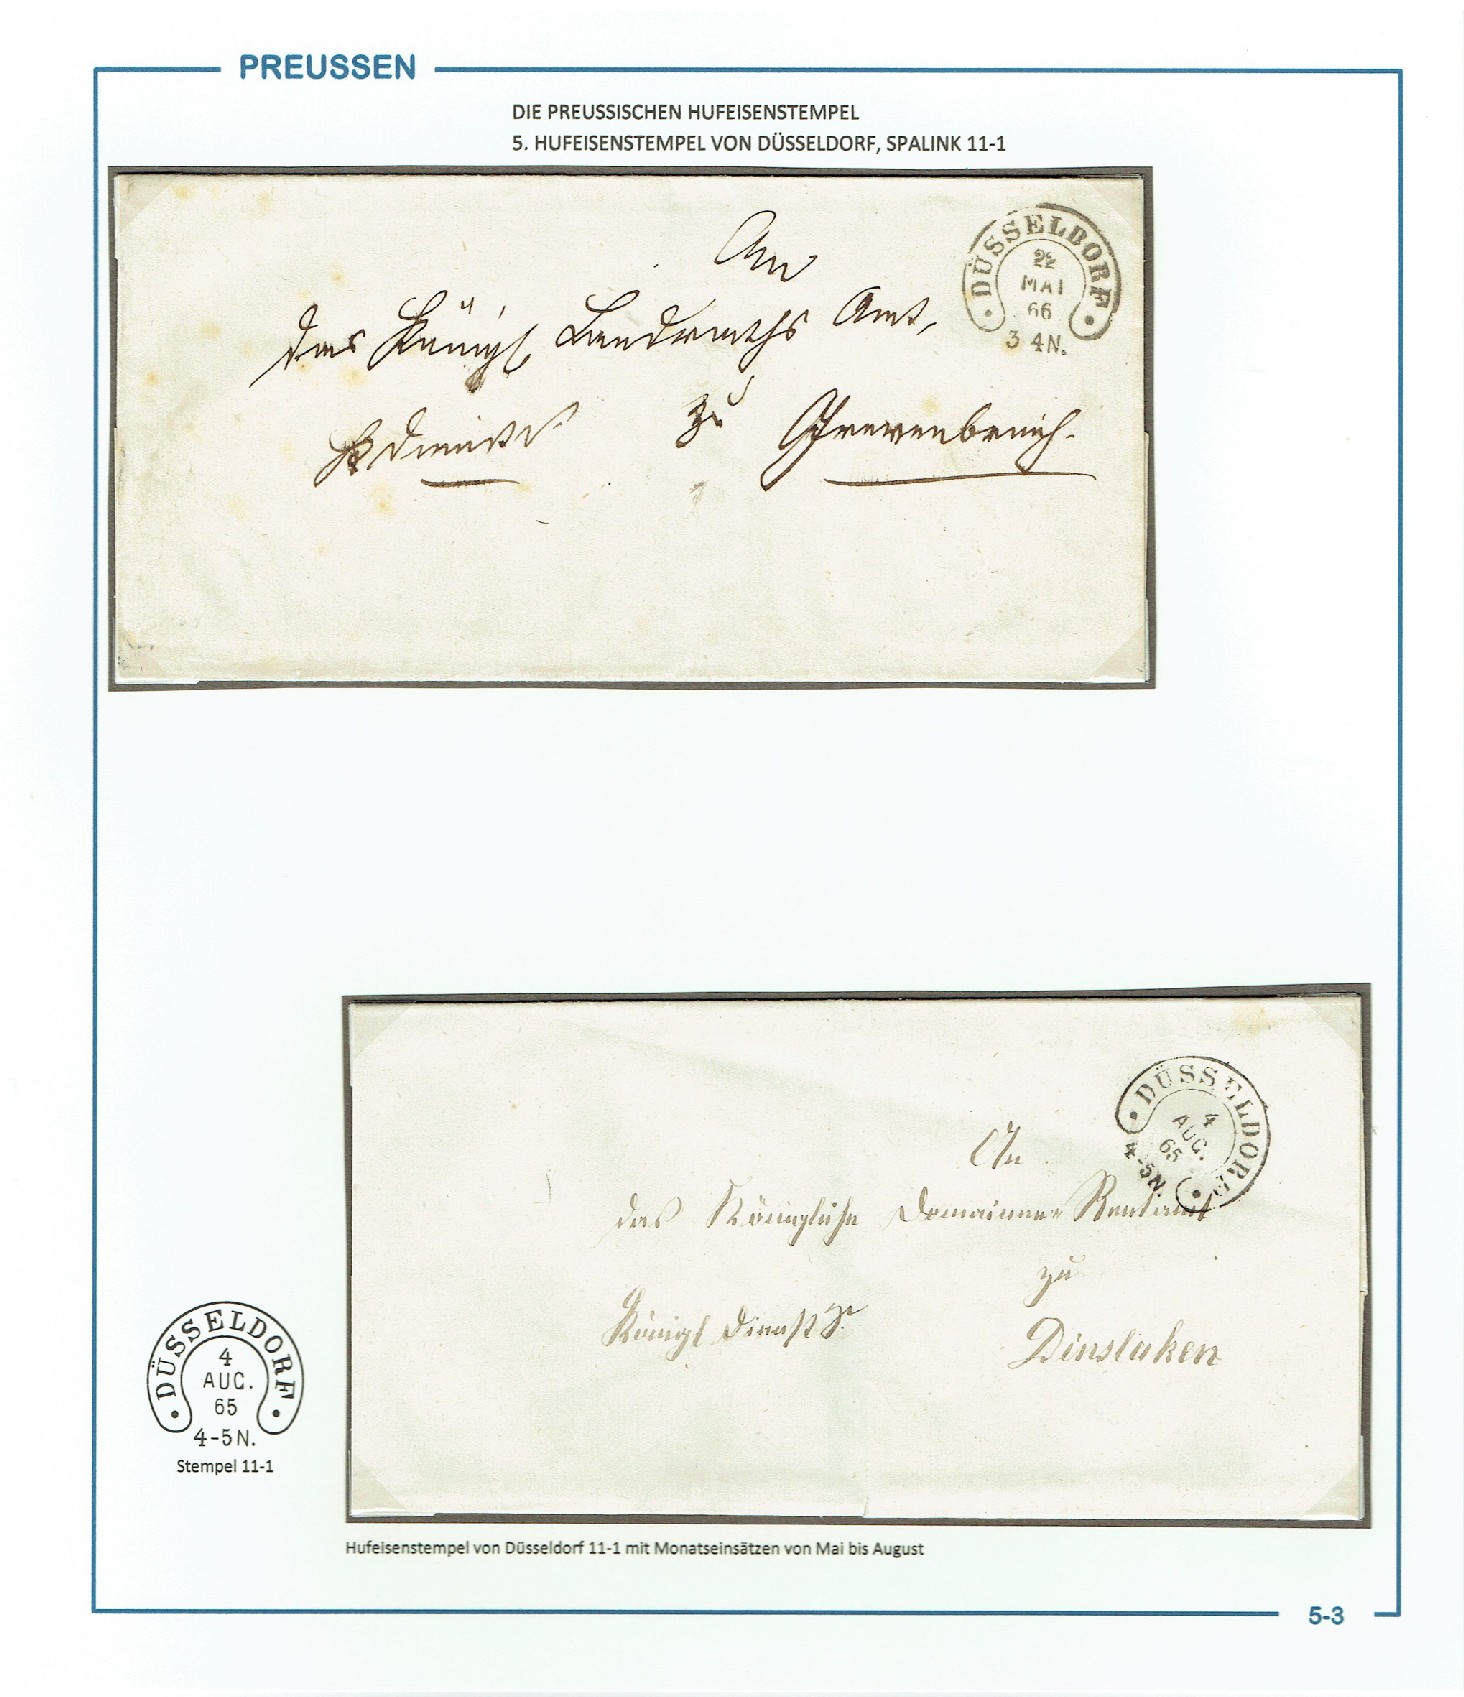 PREUSSEN
DIE PREUSSISCHEN HUFEISENSTEMPEL
5. HUFEISENSTEMPEL VON DÜSSELDORF, SPALINK 11-1
DÜSSELDORF
22
MAI
66
3 4N.
An
das Königl. Landraths Amt,
zu Grevenbroich.
DÜSSELDORF
4
AUG.
65
4-5N.
An
das Königliche Domainen Rentamt
zu
Königl Dienst S.
Dinslaken
DÜSSELDORF
4
AUG.
65
4-5N.
Stempel 11-1
Hufeisenstempel von Düsseldorf 11-1 mit Monatseinsätzen von Mai bis August
5-3